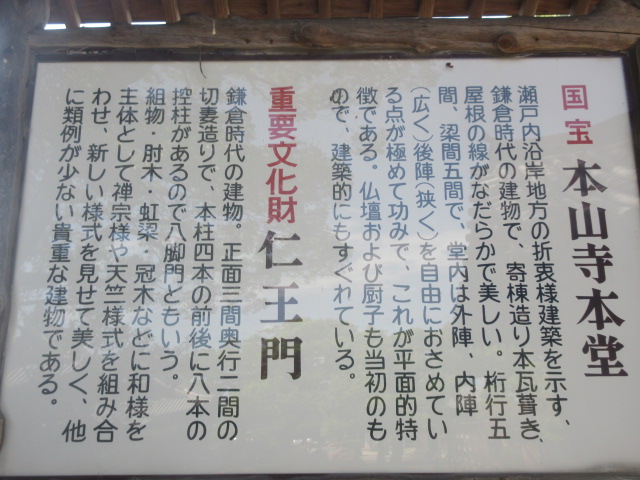 国宝 本山寺本堂
瀬戸内沿岸地方の折衷様建築を示す、
鎌倉時代の建物で、寄棟造り本瓦葺き、
屋根の線がなだらかで美しい。桁行五
間、梁間五間で、堂内は外陣、内陣
(広く)後陣(狭く)を自由におさめてい
る点が極めて功みで、これが平面的特
徴である。仏壇および厨子も当初のも
ので、建築的にもすぐれている。
重要文化財 仁王門
鎌倉時代の建物。正面三間奥行二間の
切妻造りで、本柱四本の前後に八本の
控柱があるので八脚門ともいう。
組物・肘木・虹梁・冠木などに和様を
主体として禅宗様や天竺様式を組み合
わせ、新しい様式を見せて美しく、他
に類例が少ない貴重な建物である。